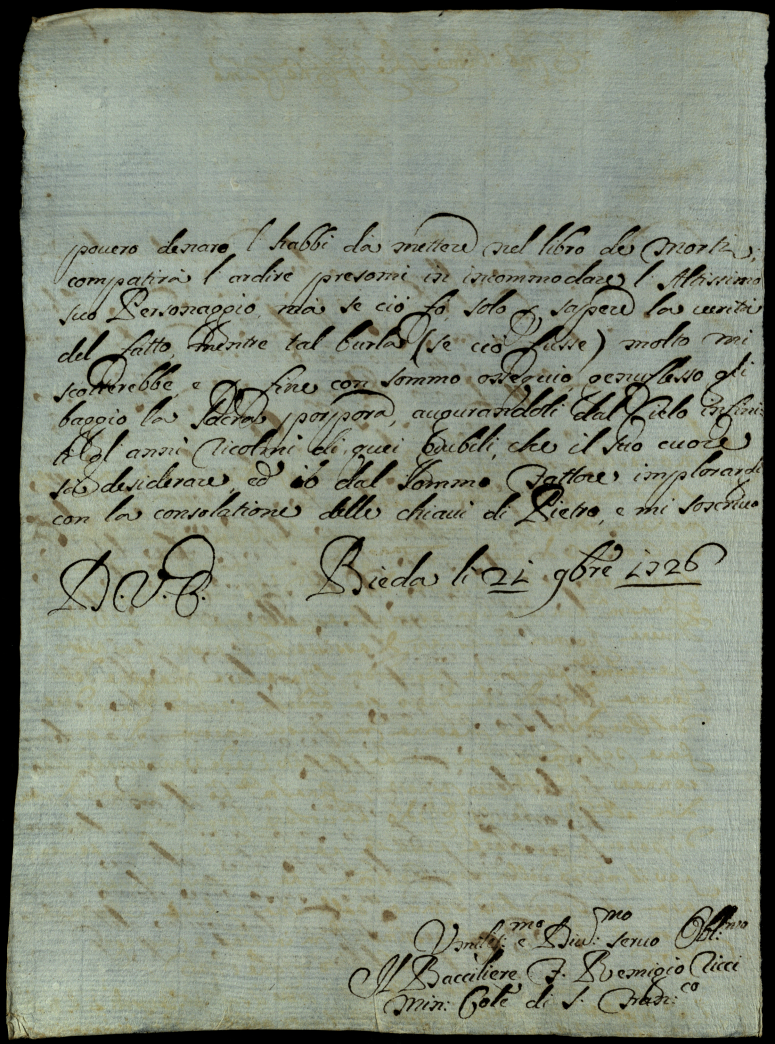 povero denaro l habbi da mettere nel libro de morti;
compatirà l ardire presomi in incommodare l Altissimo
suo Personaggio, mà se ciò fò solo p sapere la verità
del fatto, mentre tal burla (se ciò fusse) molto mi
scotterebbe, e p fine con sommo ossequio genuflesso gli
baggio la Sacra porpora, augurandoli dal Cielo infini:
ti gl anni ricolmi di quei Giubili, che il suo cuore
sà desiderare, ed io dal Sommo Fattore implorardi
con la consolatione delle chiavi di Pietro, e mi soscrivo
D. V. E. Bieda li 21 9bre 1726
Umilis:mo e Div:mo servo Obl:mo
Il Bacciliere F. Remigio Ricci
Min: Cole di S. Fran:co